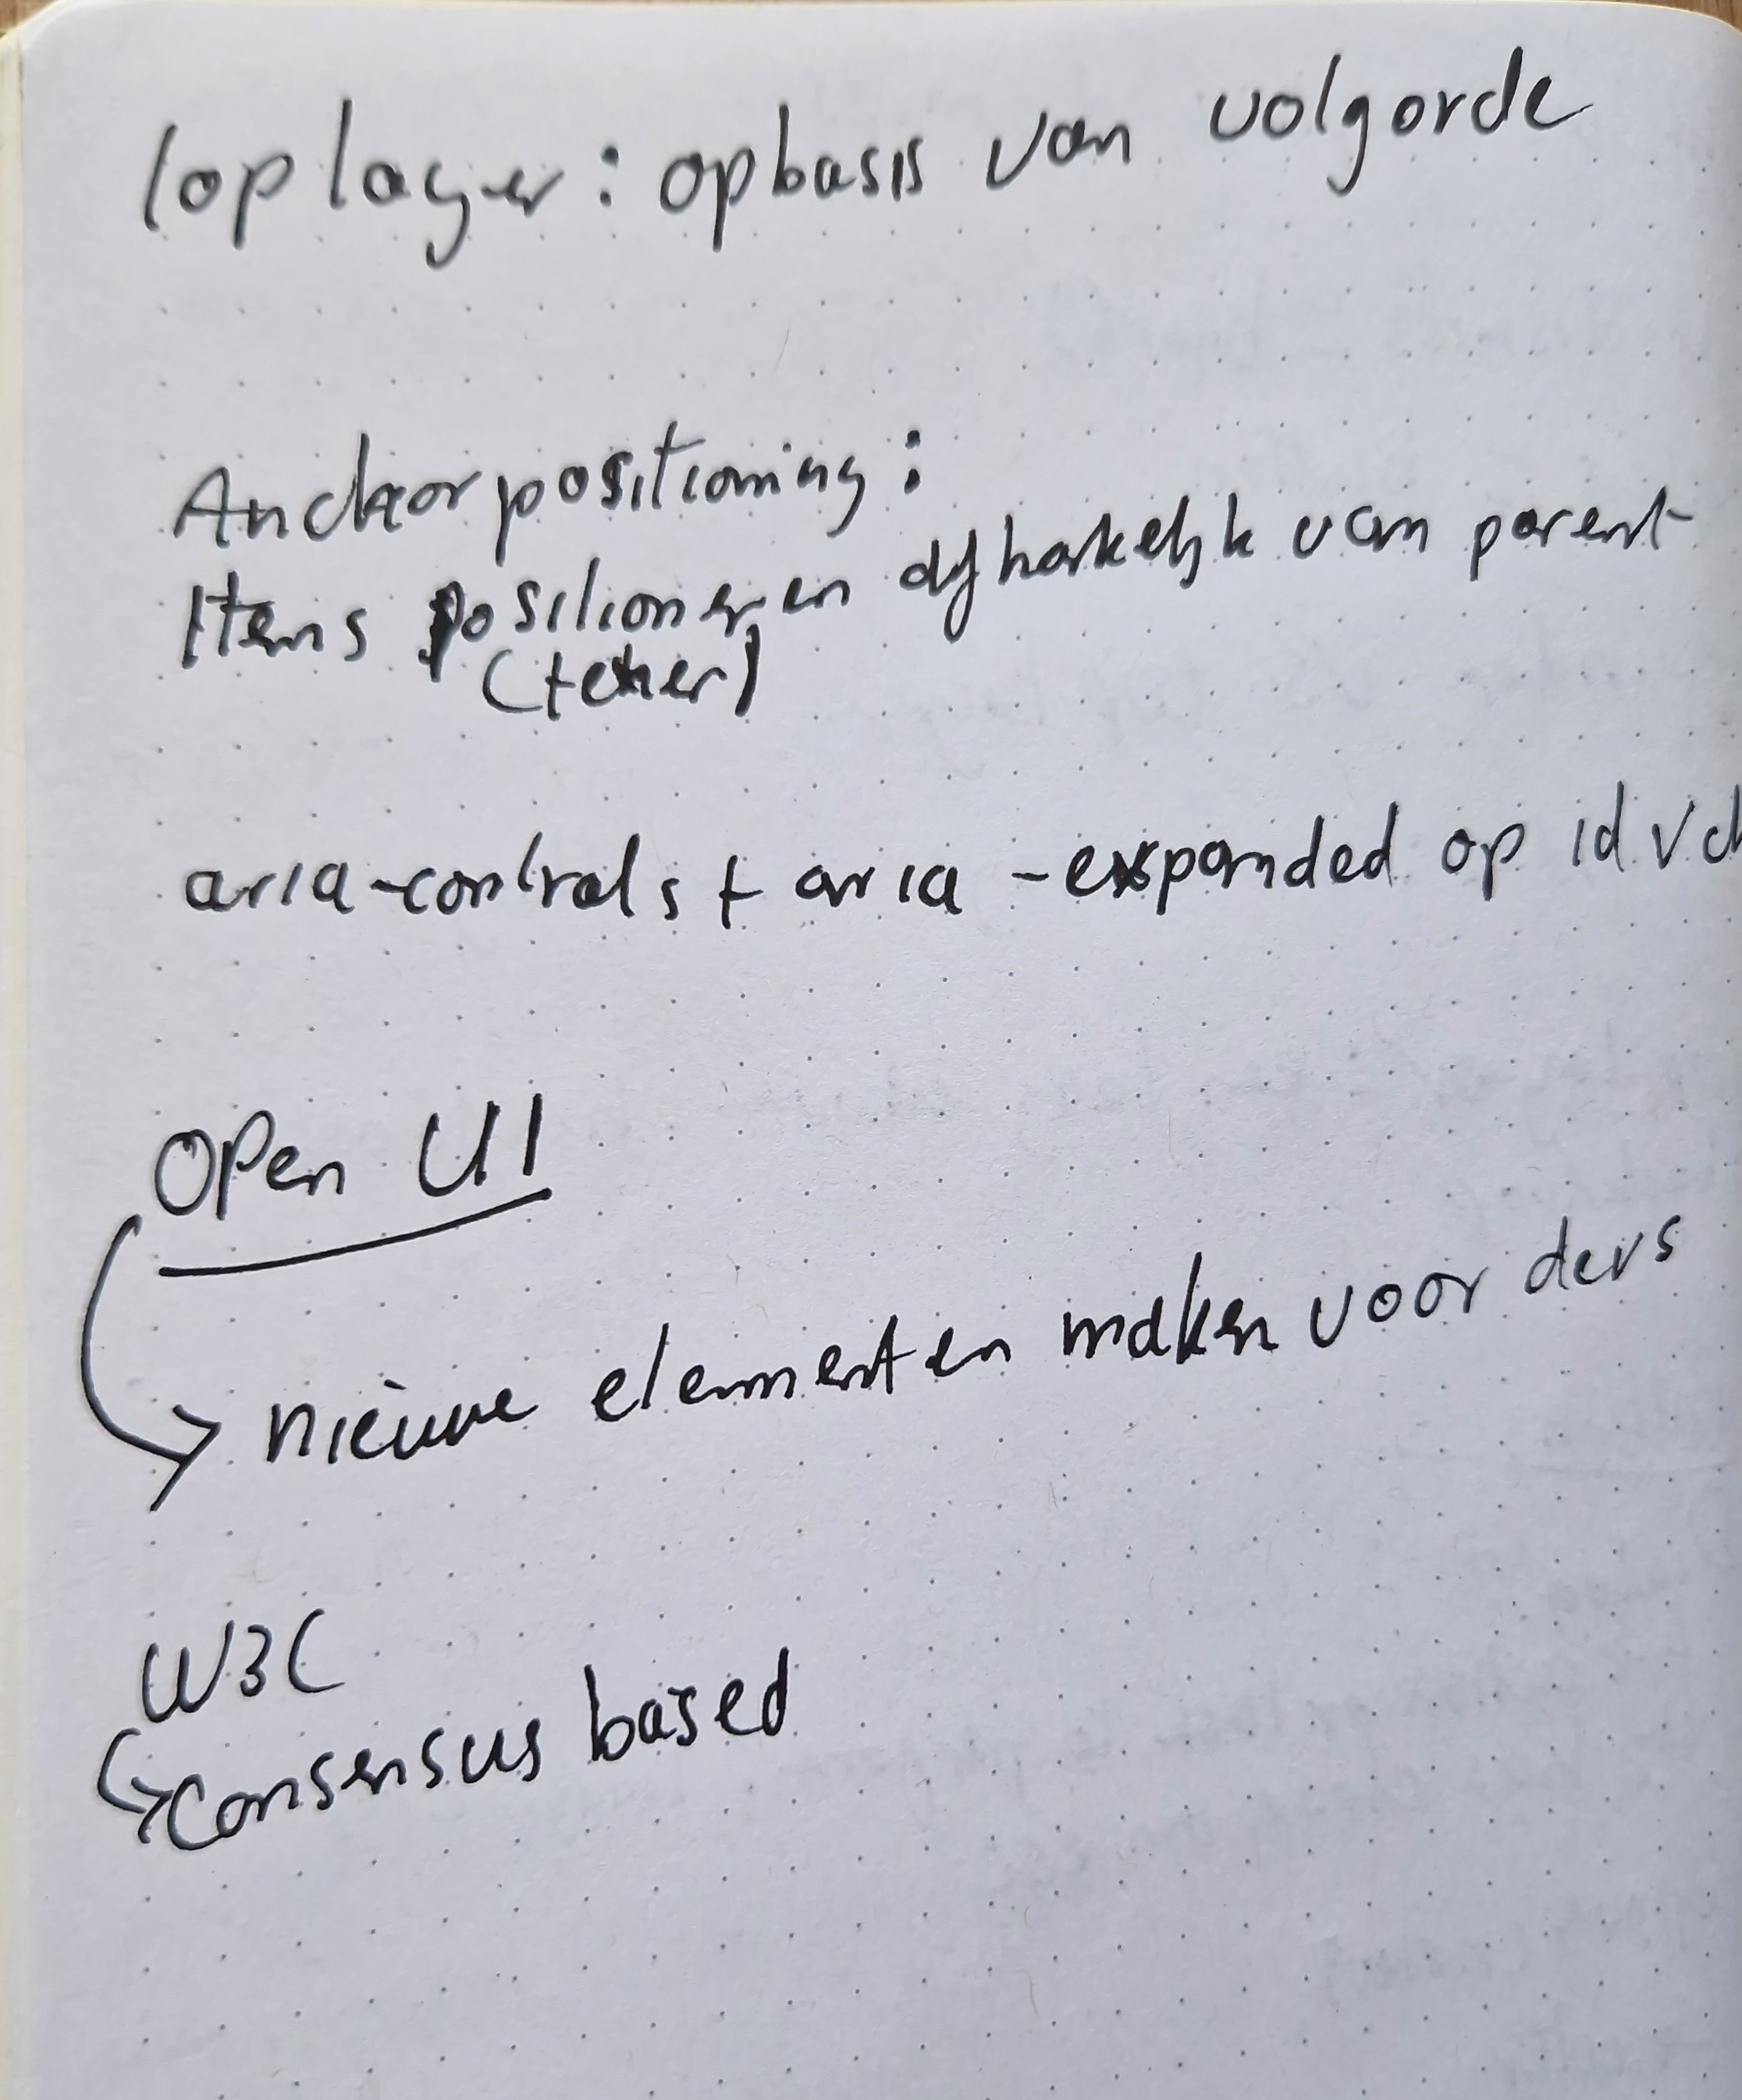 top layer: op basis van volgorde
Anchor positioning:
Items positioneren afhankelijk van parent
(tether)
aria-controls + aria-expanded op id
Open UI
nieuwe elementen maken voor devs
W3C
consensus based